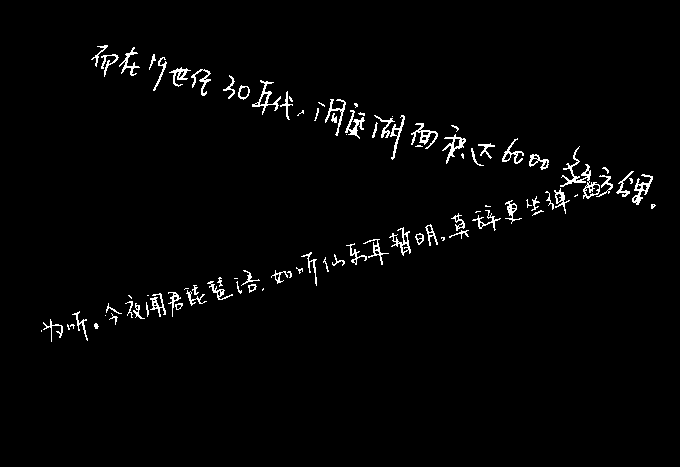 而在19世纪30年代,洞庭湖面积达6000平方公里.
为听。今夜闻君琵琶语,如听仙乐耳暂明。莫辞更坐弹一曲